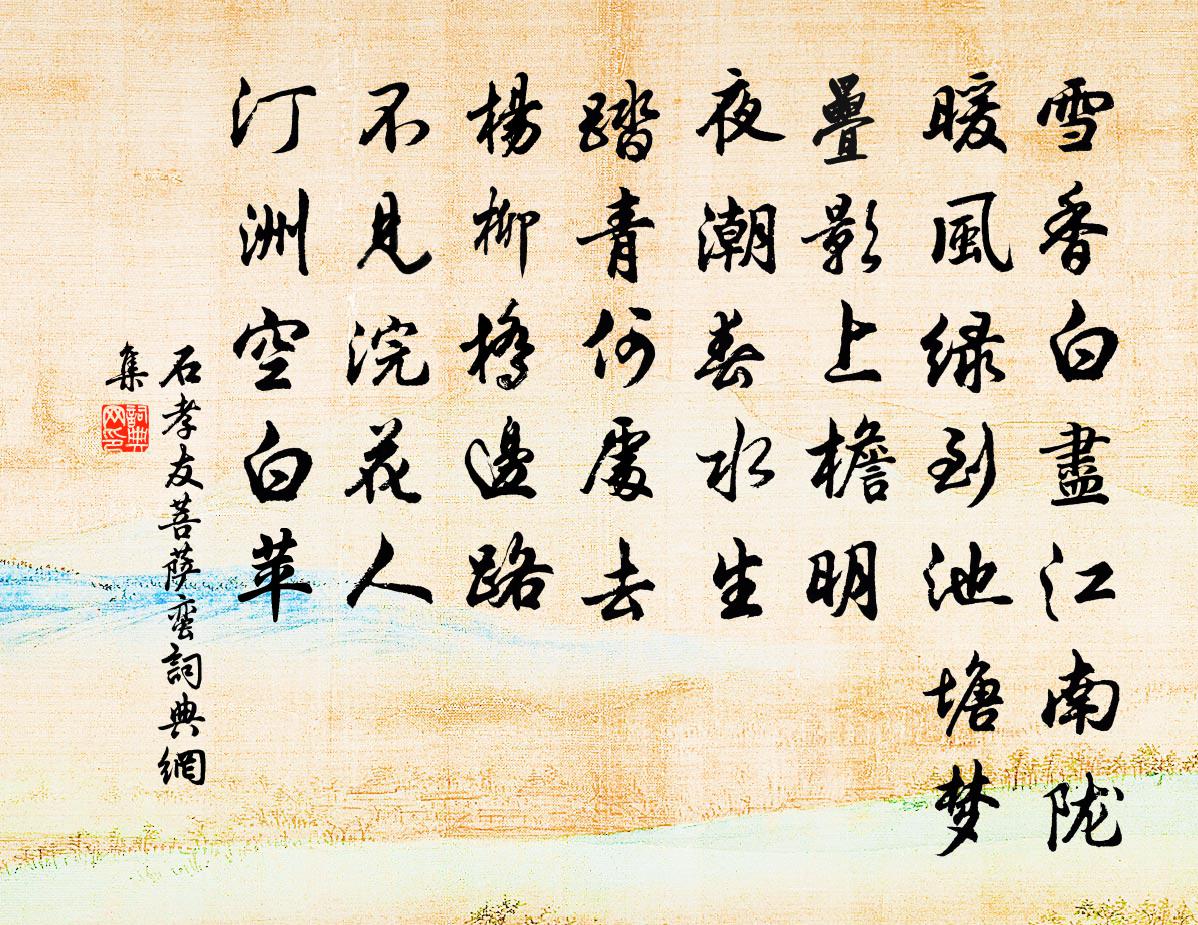 雪香白盡江南陇
暖風緑到池塘梦
疊影上檐明
夜潮春水生
踏青何處去
楊柳橋邊路
不見浣花人
汀洲空白苹
石孝友菩萨蛮詞典網
集
詞典
网印